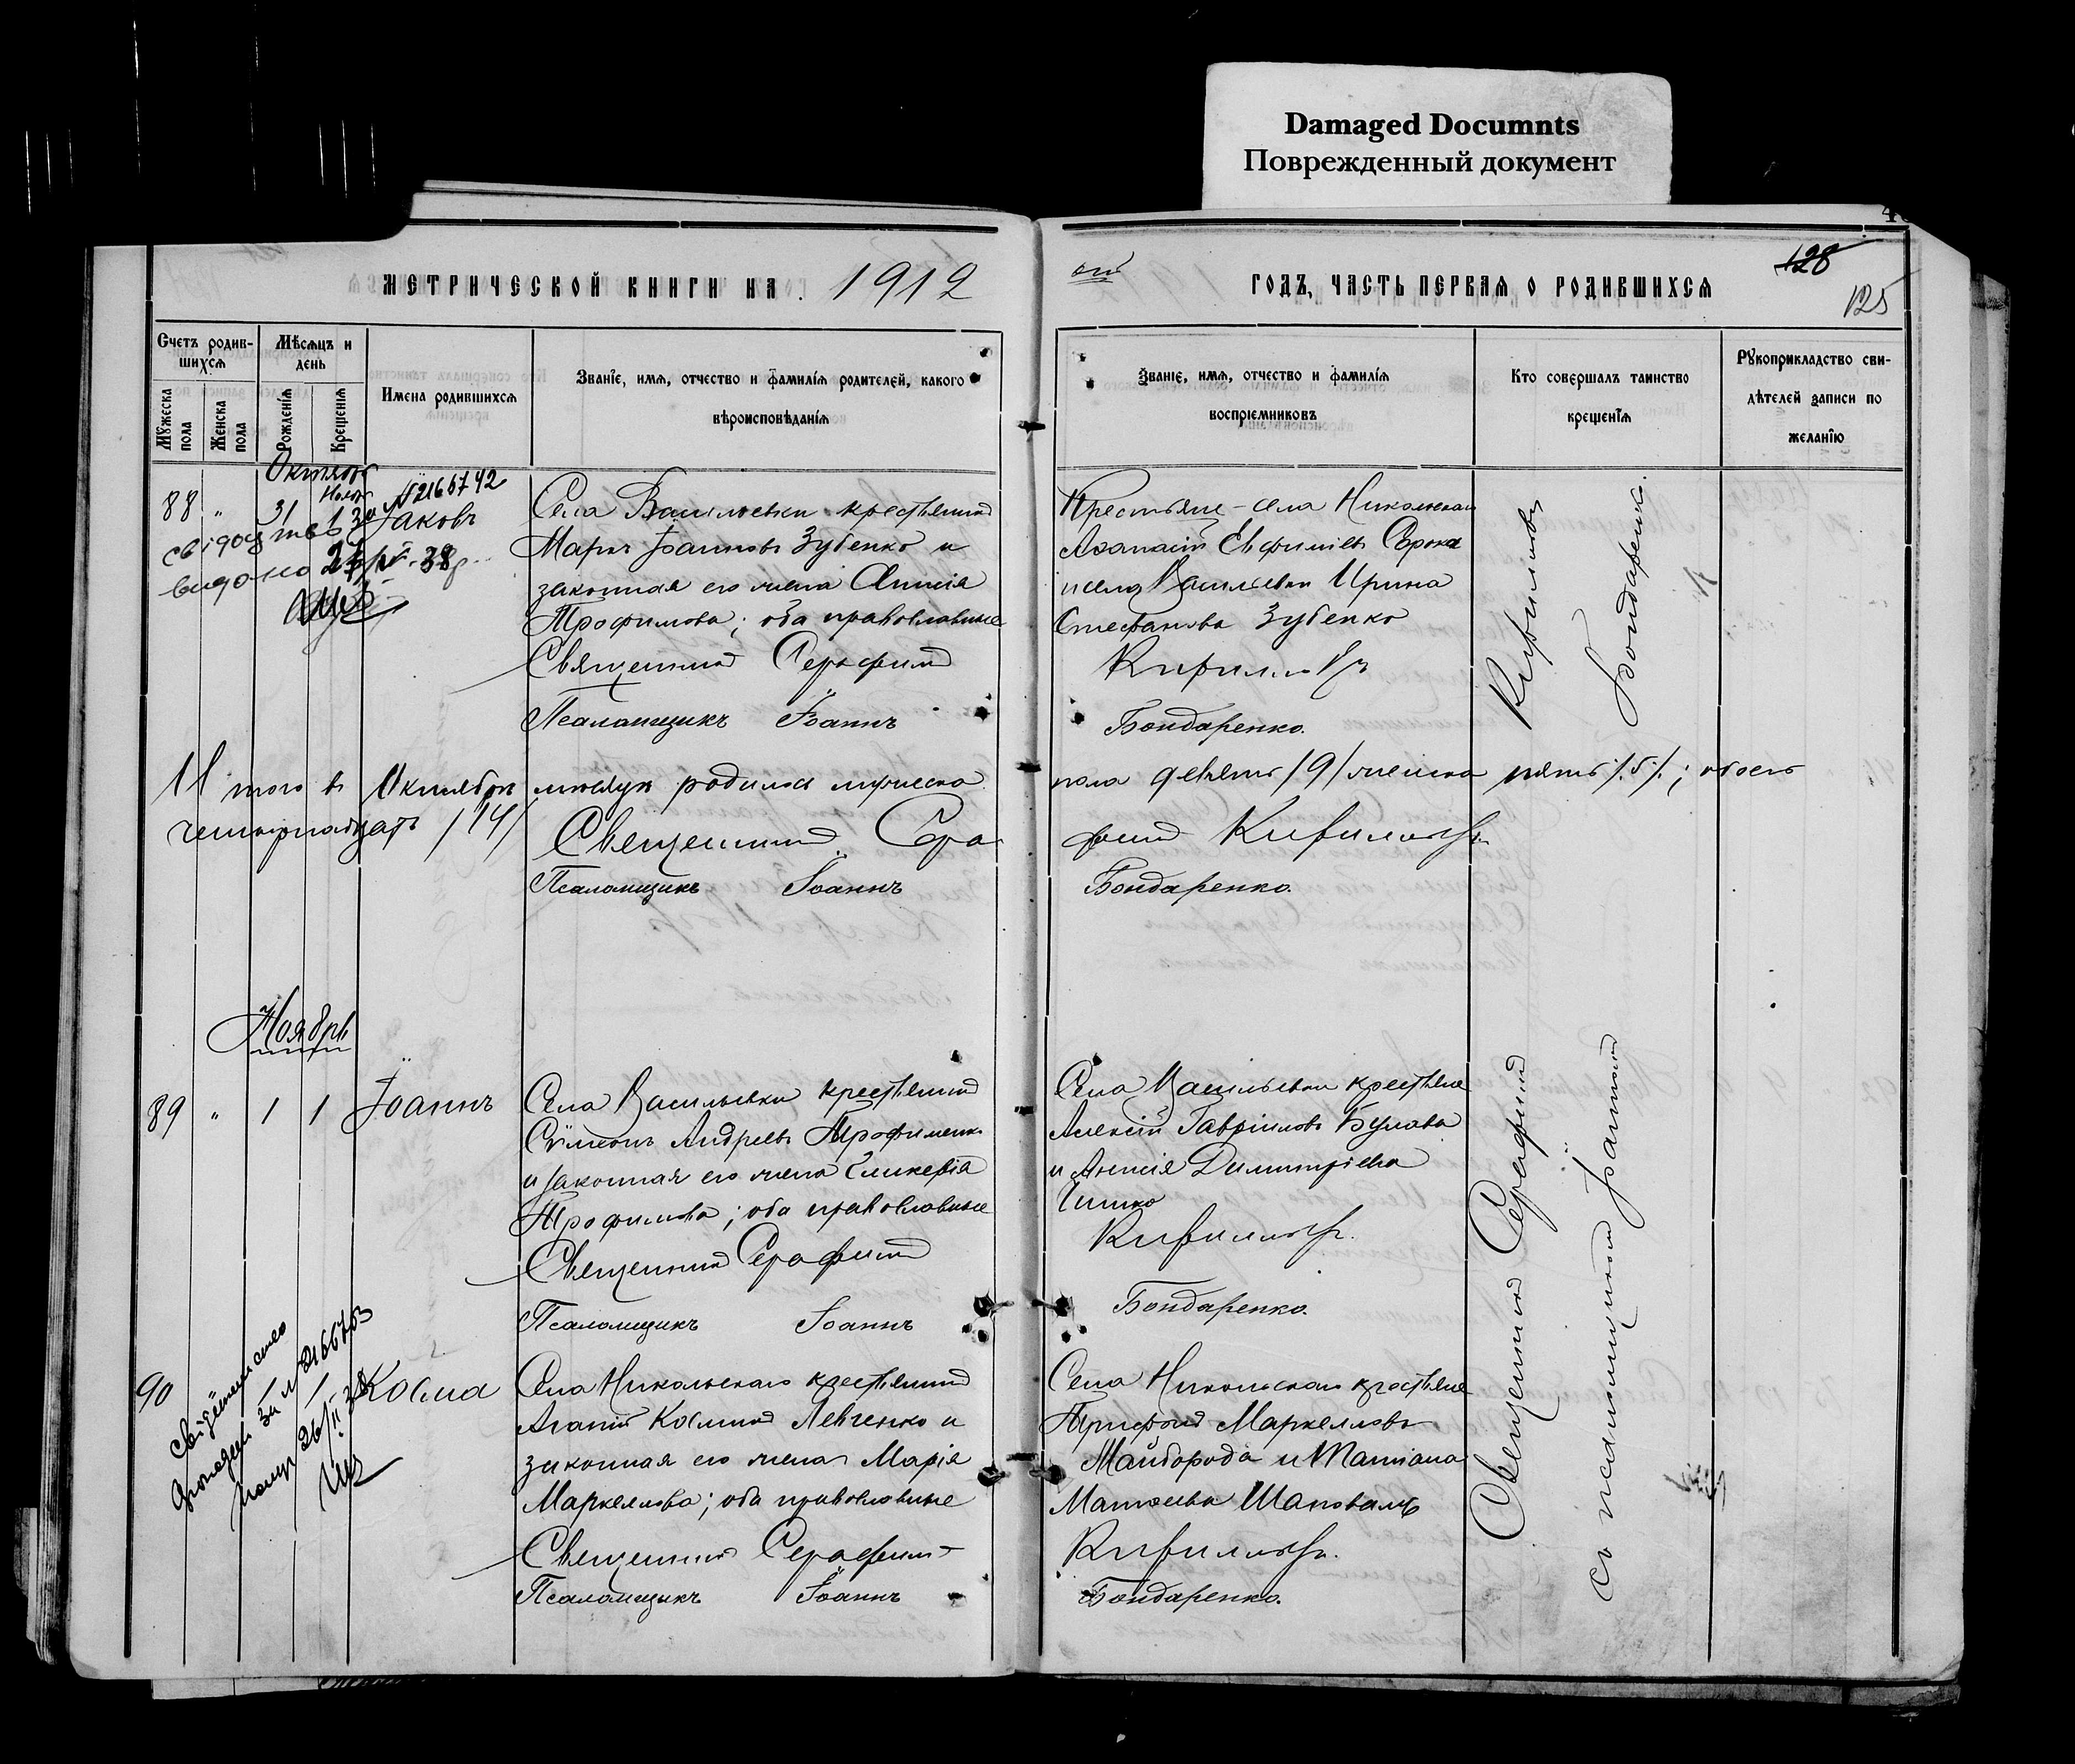 Damaged Documnts
Поврежденный документ
МЕТРИЧЕСКОЙ КНИГИ НА 1912
Счетъ родив-
шихся
Мѣсяцъ и
день
Мужеска
пола
Женска
пола
Рожденія
Крещенія
Имена родившихся
Званіе, имя, отчество и фамилія родителей, какого
вѣроисповѣданія
Октябрь
88 " 31 1 Іаковъ
за №2166742
свідоцтво
видано 38р.
Села Васильевки крестьянинъ
Маркъ Іоанновъ Зубенко и
законная его жена Анисія
Трофимова; оба православные
Священникъ Серафимъ
Псаломщикъ Іоаннъ
Итого въ Октябрѣ мѣсяцѣ родилось мужеска
четырнадцать /14/
Священникъ Сера
Псаломщикъ Іоаннъ
Ноябрь
89 " 1 1 Іоаннъ
Села Васильевки крестьянинъ
Сѵмеонъ Андреевъ Трофименко
и законная его жена Гликерія
Трофимова; оба православные
Священникъ Серафимъ
Псаломщикъ Іоаннъ
90 Косма
Села Никольскаго крестьянинъ
Агапій Косминъ Левченко и
законная его жена Марія
Маркеллова; оба православные
Священникъ Серафимъ
Псаломщикъ Іоаннъ
ГОДЪ, ЧАСТЬ ПЕРВАЯ О РОДИВШИХСЯ
128
125
Званіе, имя, отчество и фамилія
воспріемниковъ
Кто совершалъ таинство
крещенія
Рукоприкладство сви-
дѣтелей записи по
желанію
Крестьяне села Никольскаго
Аѳанасій Евфиміевъ Сорока
и села Васильевки Ирина
Стефанова Зубенко
Кириловъ
Бондаренко.
Кириловъ
Бондаренко.
пола девять /9/ женска пять /5/; обоего
фимъ Кириловъ
Бондаренко.
Села Васильевки крестьяне
Алексій Гавріиловъ Булава
и Анисія Димитріева
Кириловъ.
Бондаренко.
Села Никольскаго крестьяне
Трифонъ Маркелловъ
Майборода и Татіана
Матѳеева Шаповалъ
Кириловъ.
Бондаренко.
Священникъ Серафимъ
съ псаломщикомъ Іоанномъ